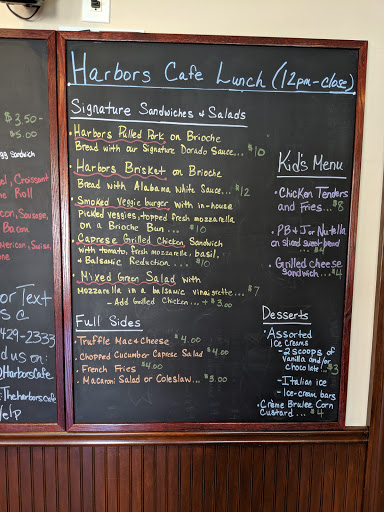 Harbors Cafe Lunch (12pm-close)
Signature Sandwiches & Salads
• Harbors Pulled Pork on Brioche
Bread with our Signature Dorado Sauce... $10
• Harbors Brisket on Brioche
Bread with Alabama White Sauce... $12
• Smoked Veggie burger with in-house
Picked veggies, topped fresh mozzarella
on a Brioche Bun ... $10
• Caprese Grilled Chicken Sandwich
with tomato, fresh mozzarella, basil.
& Balsamic Reduction ... $10
• Mixed Green Salad with
Mozzarella in a balsamic vinaigrette... $7
- Add Grilled Chicken... + $3.00
Full Sides
• Truffle Mac & Cheese $4.00
• Chopped Cucumber Caprese Salad $4.00
• French Fries $4.00
• Macaroni Salad or Coleslaw... $3.00
Kid's Menu
• Chicken Tenders
and Fries... $8
• PB & J or Nutella
on sliced sweet bread
$4
• Grilled cheese
Sandwich... $4
Desserts
• Assorted
Ice Creams
- 2 scoops of
vanilla and/or
chocolate! .. $3
- Italian ice
- Ice-cream bars
• Creme Brulee Corn
Custard... $4
$3.50-
$5.00
gg Sandwich
Croissant
Roll
Sausage,
Bacon
merican, Swiss,
one
or Text
us @
429-2333
d us on:
Harborscafe
Theharborscafe
Yelp